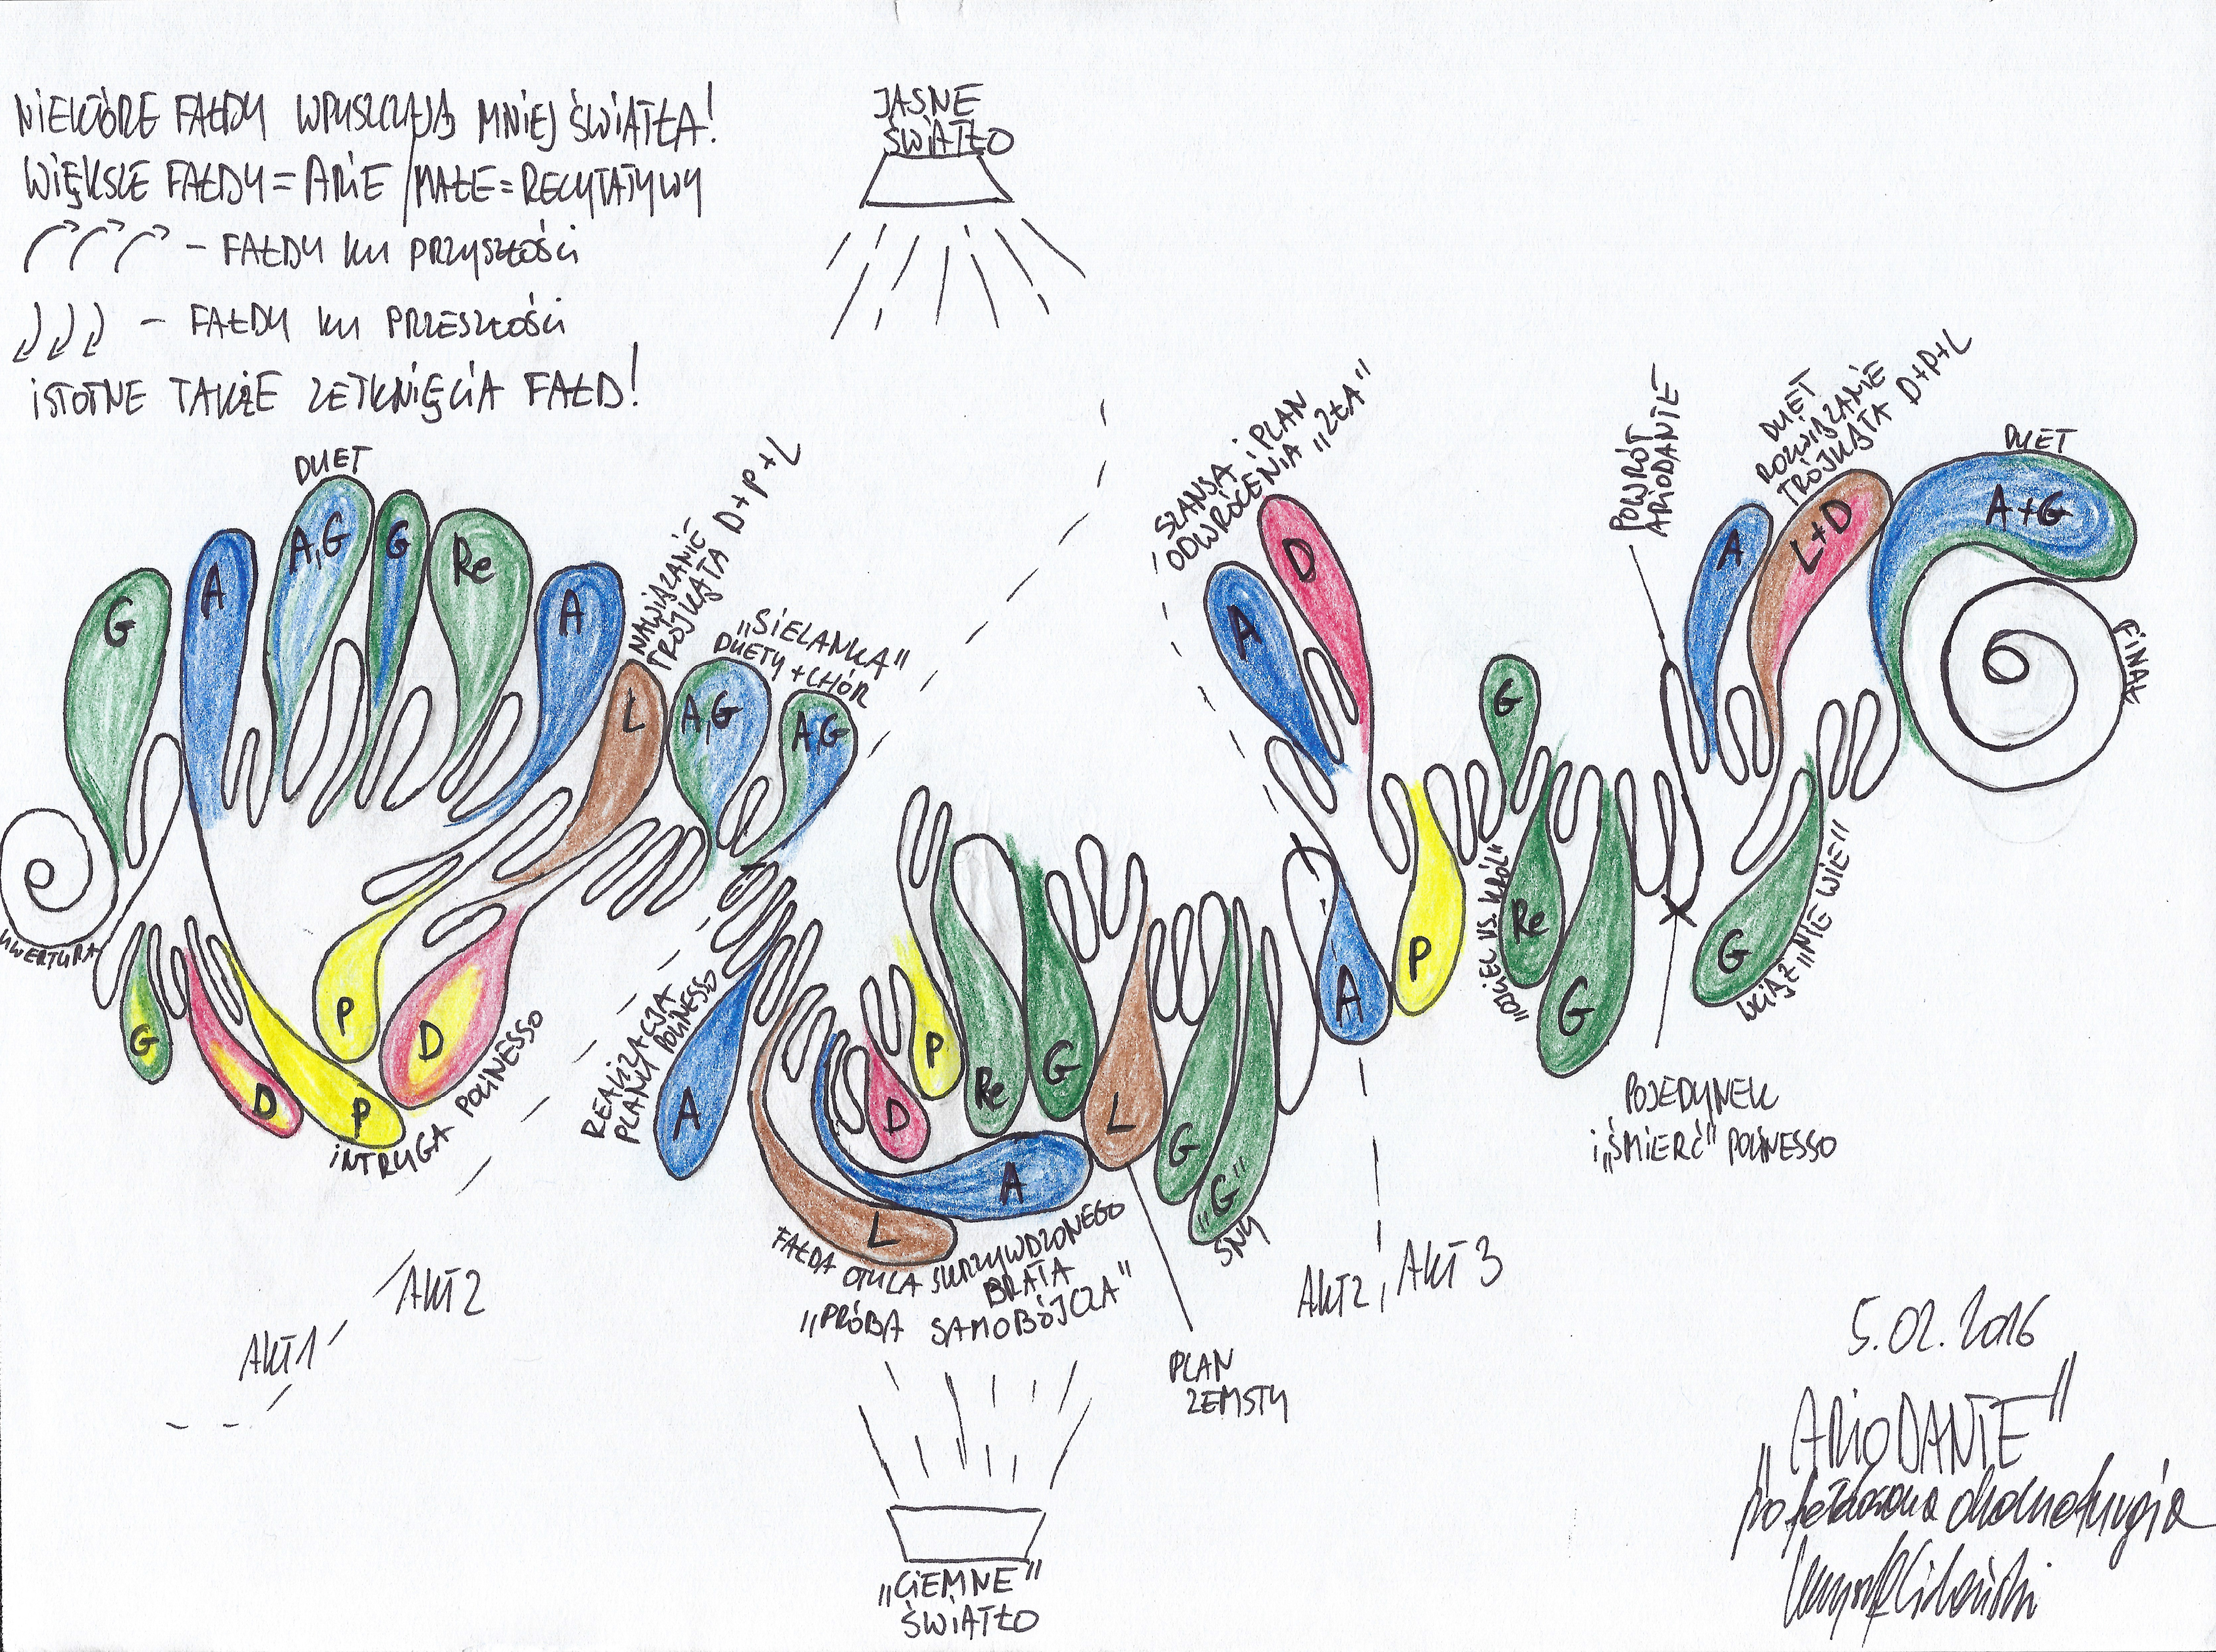 NIEKTÓRE FAŁDY WPUSZCZAJĄ MNIEJ ŚWIATŁA!
WIĘKSZE FAŁDY = ARIE / MAŁE = RECYTATYWY
– FAŁDY KU PRZYSZŁOŚCI
– FAŁDY KU PRZESZŁOŚCI
ISTOTNE TAKŻE ZETKNIĘCIA FAŁD!
JASNE
ŚWIATŁO
UWERTURA
G
A
DUET
A,G
G
Re
A
NAWIĄZANIE
TRÓJKĄTA D+P+L
L
"SIELANKA"
DUETY + CHÓR
A,G
A,G
G
D
P
P
D
INTRYGA POLINESSO
AKT 1
AKT 2
REALIZACJA
PLANU POLINESSO
A
L
A
D
P
Re
G
L
G
"G"
SNY
FAŁDA OTULA SKRZYWDZONEGO
BRATA
"PRÓBA SAMOBÓJCZA"
PLAN
ZEMSTY
"CIEMNE"
ŚWIATŁO
SZANSA i PLAN
ODWRÓCENIA "ZŁA"
A
D
A
P
G
"OJCIEC VS. KRÓL"
Re
G
AKT 2, AKT 3
POWRÓT
ARIODANTE
POJEDYNEK
i "ŚMIERĆ" POLINESSO
A
DUET
ROZWIĄZANIE
TRÓJKĄTA D+P+L
L+D
G
WCIĄŻ "NIE WIE"
DUET
A+G
FINAŁ
5.02.2016
"ARIODANTE"
pofałdowana dramaturgia